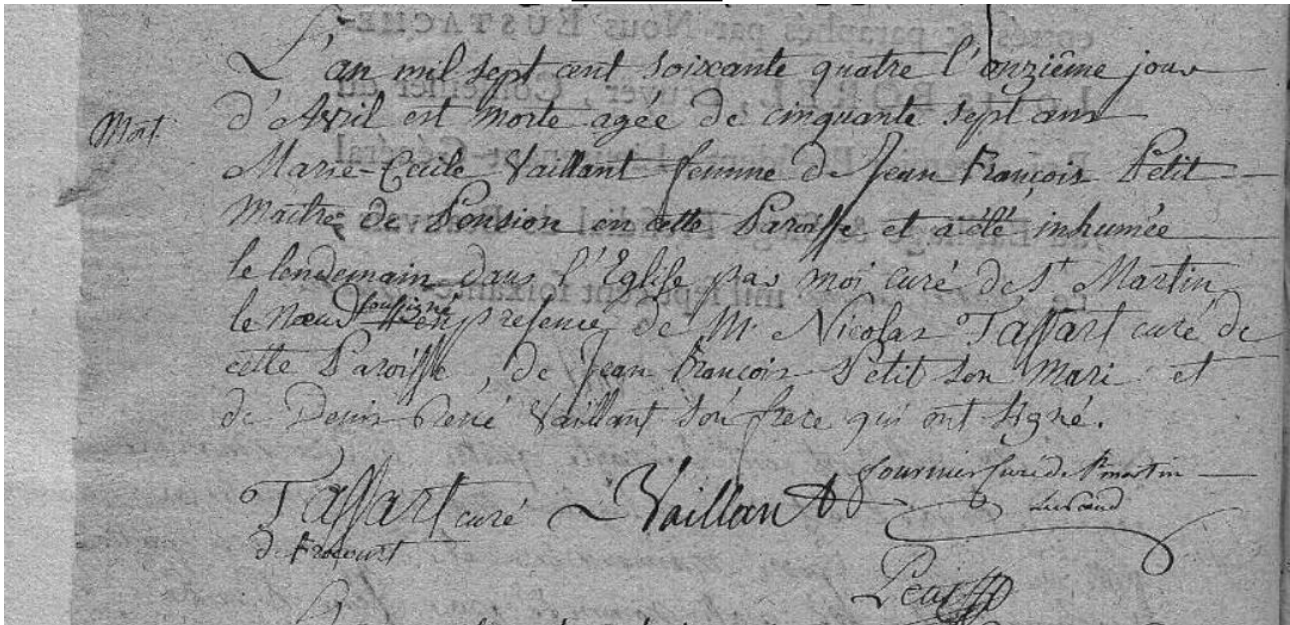 L'an mil sept cent soixante quatre l'onzième jour
Mort
d'Avril est morte agée de cinquante sept ans
Marie-Cecile Vaillant femme de Jean François Petit
Maitre de Pension en cette Paroisse et a été inhumée
le lendemain dans l'Eglise par moi curé de St Martin
le Nœud soussigné en presence de Mr Nicolas Taffart curé de
cette Paroisse, de Jean François Petit son Mari et
de Denis René Vaillant son frere qui ont signé.
Taffart curé
de frocourt
Vaillant
fournier Curé de St martin
Petit